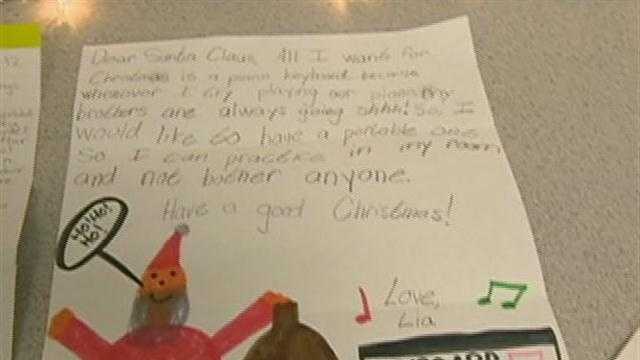 Dear Santa Claus, All I want for
Christmas is a piano keyboard because
whenever I try playing our piano my
brothers are always going shhh! So I
would like to have a portable one
So I can practice in my room
and not bother anyone.
Have a good Christmas!
Ho! Ho!
Ho!
Love,
Lia